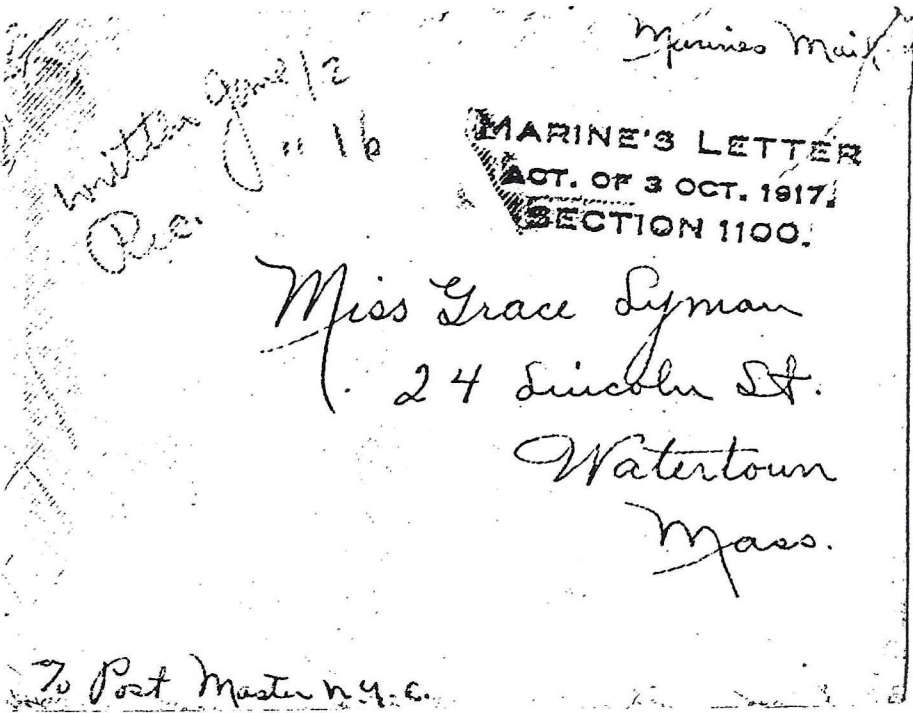 Marines Mail
written June 12
Rec. " 16
MARINE'S LETTER
ACT. OF 3 OCT. 1917.
SECTION 1100.
Miss Grace Lyman
24 Lincoln St.
Watertown
Mass.
To Post Master N.Y.C.